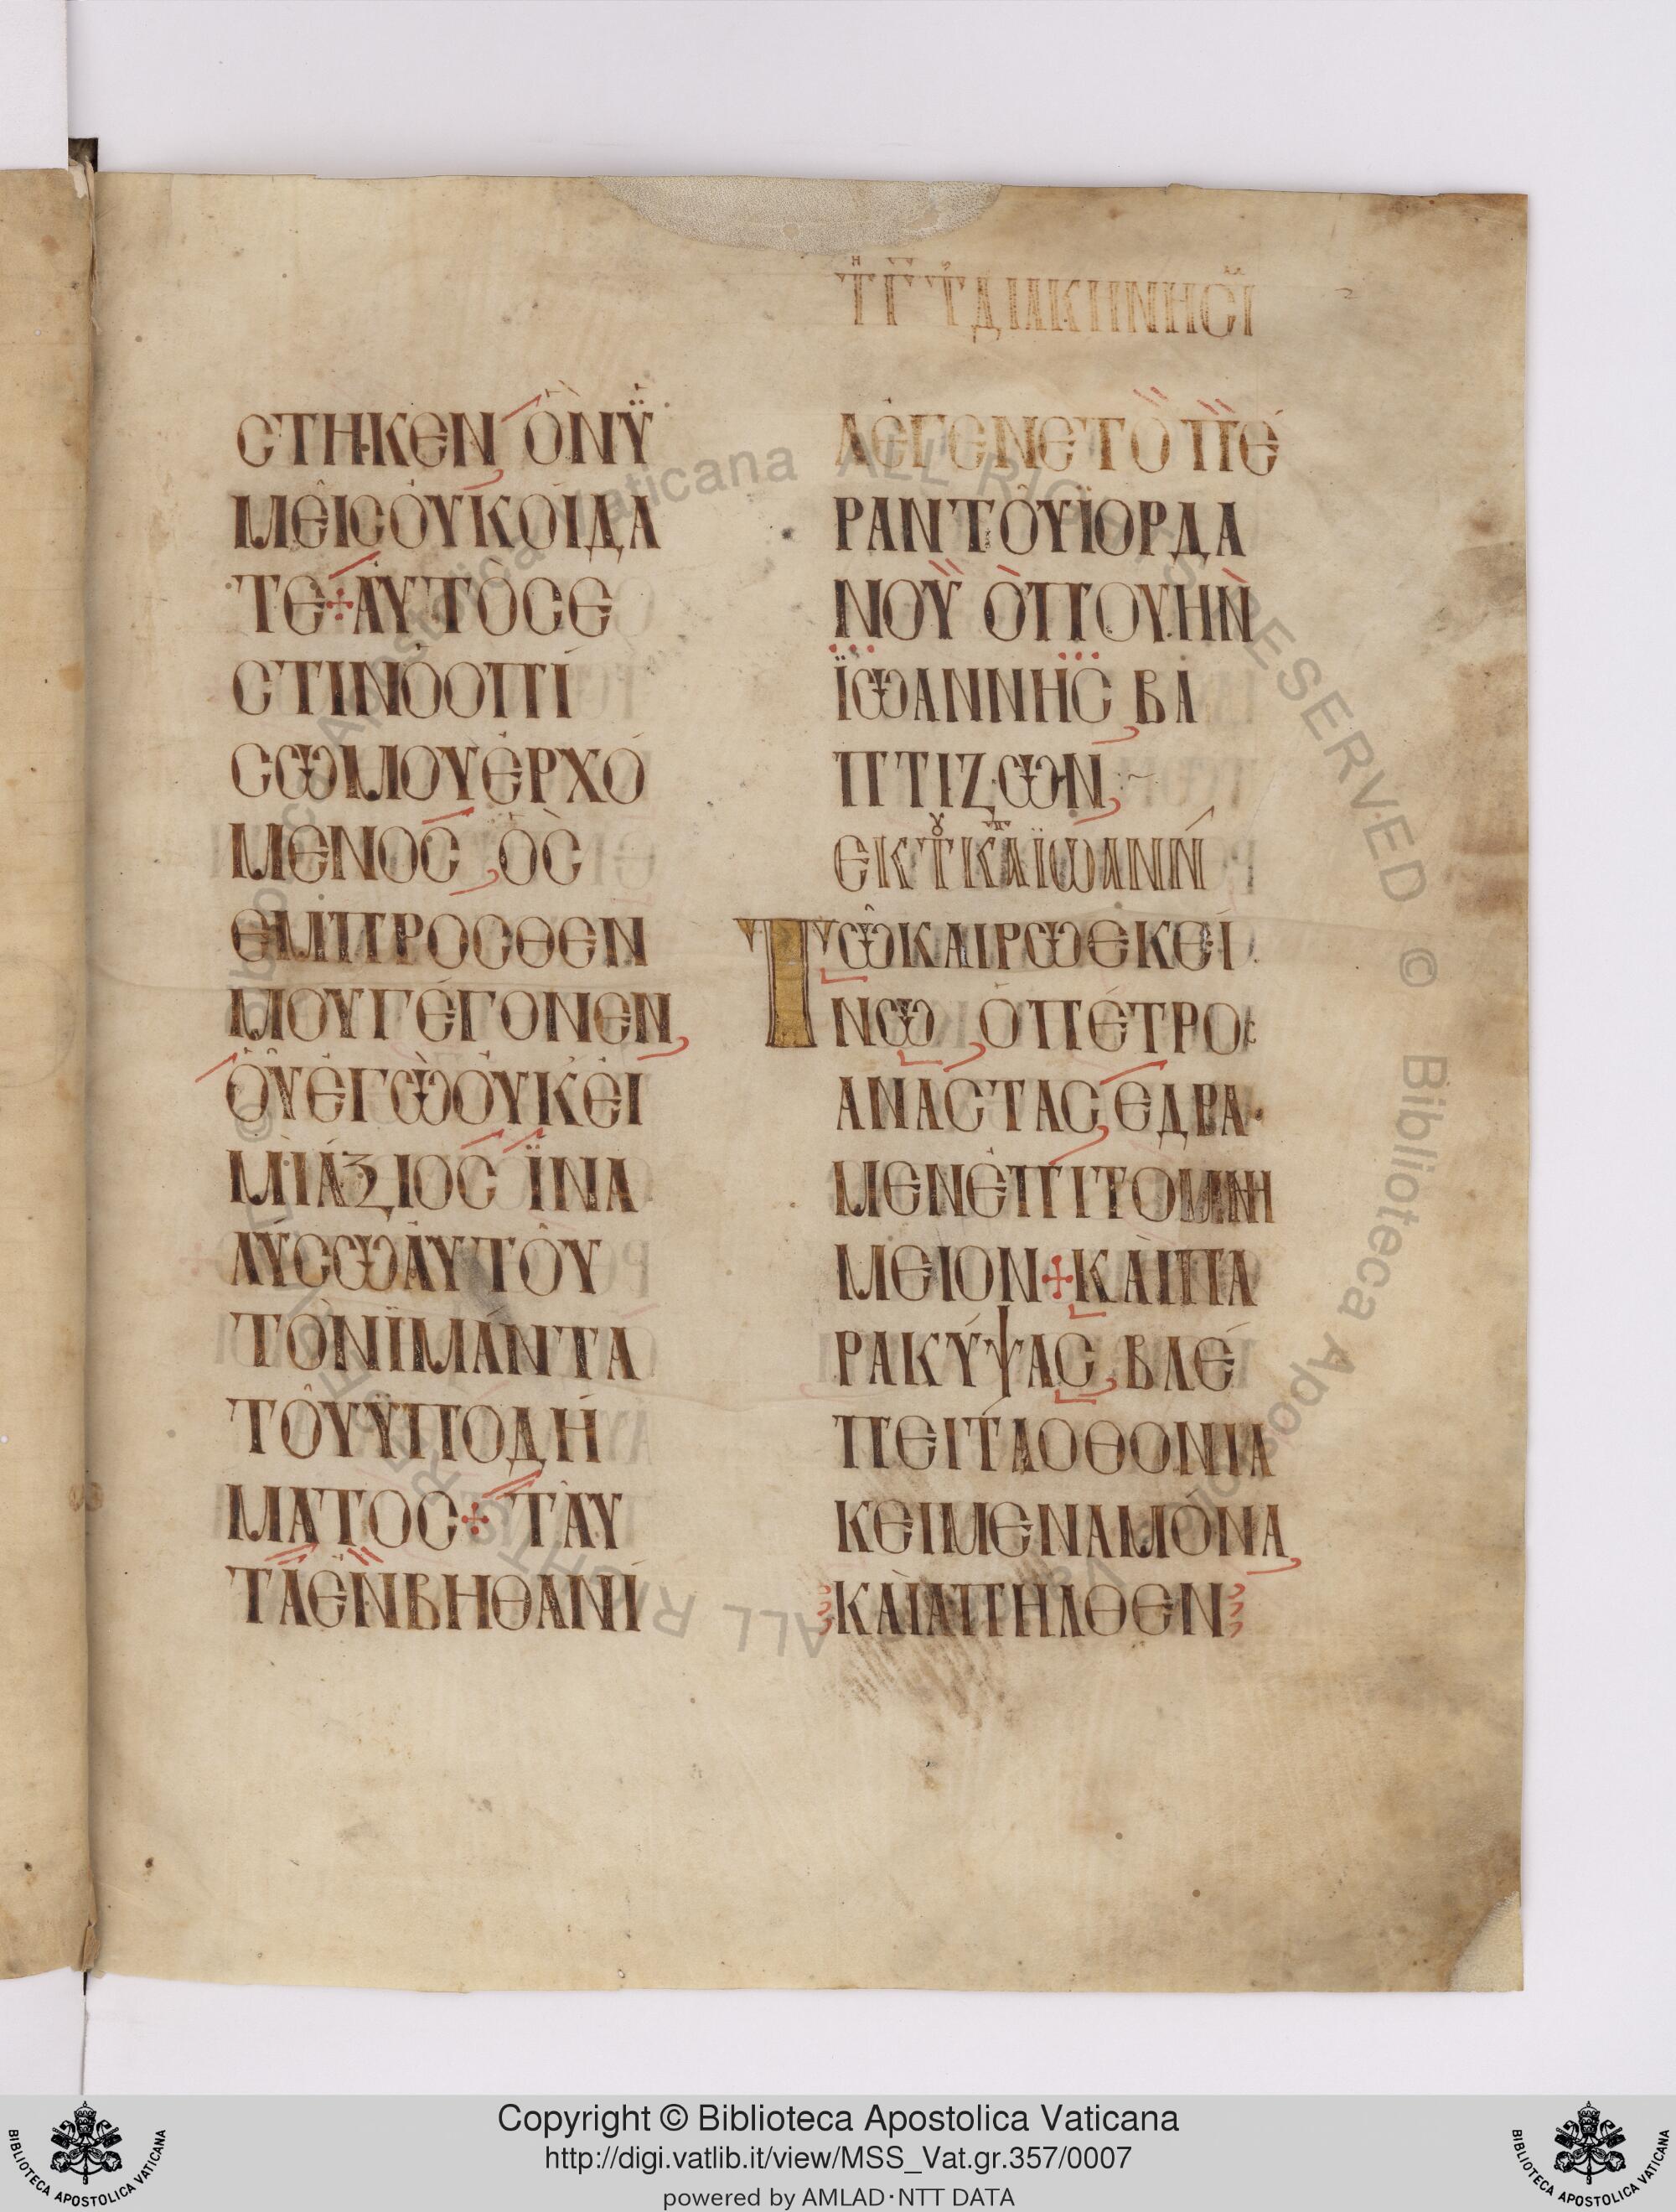 ϹΤΗΚΕΝ ὍΝΫ
ΜΕΙϹΟΥΚΟΙΔΑ
ΤΕ+ΑΥΤΟϹΕ
ϹΤΙΝΟΟΠΙ
ϹΩΜΟΥΕΡΧΟ
ΜΕΝΟϹ ΟϹ
ΕΜΠΡΟϹΘΕΝ
ΜΟΥΓΕΓΟΝΕΝ
ΟΥΕΓΩΟΥΚΕΙ
ΜΙΑΞΙΟϹ ΪΝΑ
ΛΥϹΩΑΥΤΟΥ
ΤΟΝΪΜΑΝΤΑ
ΤΟΥΫΠΟΔΗ
ΜΑΤΟϹ+ΤΑΥ
ΤΑΕΝΒΗΘΑΝΙ
ΔΙΑΚΙΝΗϹΙ
ΑΕΓΕΝΕΤΟ ΠΕ
ΡΑΝΤΟΥΪΟΡΔΑ
ΝΟΥ ΟΠΟΥΗΝ
ΪΩΑΝΝΗϹ ΒΑ
ΠΤΙΖΩΝ
ΕΚΤΚΑΪΩΑΝΝ
ΤΩΚΑΙΡΩΕΚΕΙ
ΝΩ ΟΠΕΤΡΟϹ
ΑΝΑϹΤΑϹ ΕΔΡΑ
ΜΕΝΕΠΙΤΟΜΝΗ
ΜΕΙΟΝ+ΚΑΙΠΑ
ΡΑΚΥΨΑϹ ΒΛΕ
ΠΕΙΤΑΟΘΟΝΙΑ
ΚΕΙΜΕΝΑΜΟΝΑ
ΚΑΙΑΠΗΛΘΕΝ
Copyright © Biblioteca Apostolica Vaticana
http://digi.vatlib.it/view/MSS_Vat.gr.357/0007
powered by AMLAD·NTT DATA
BIBLIOTECA APOSTOLICA VATICANA
BIBLIOTECA APOSTOLICA VATICANA